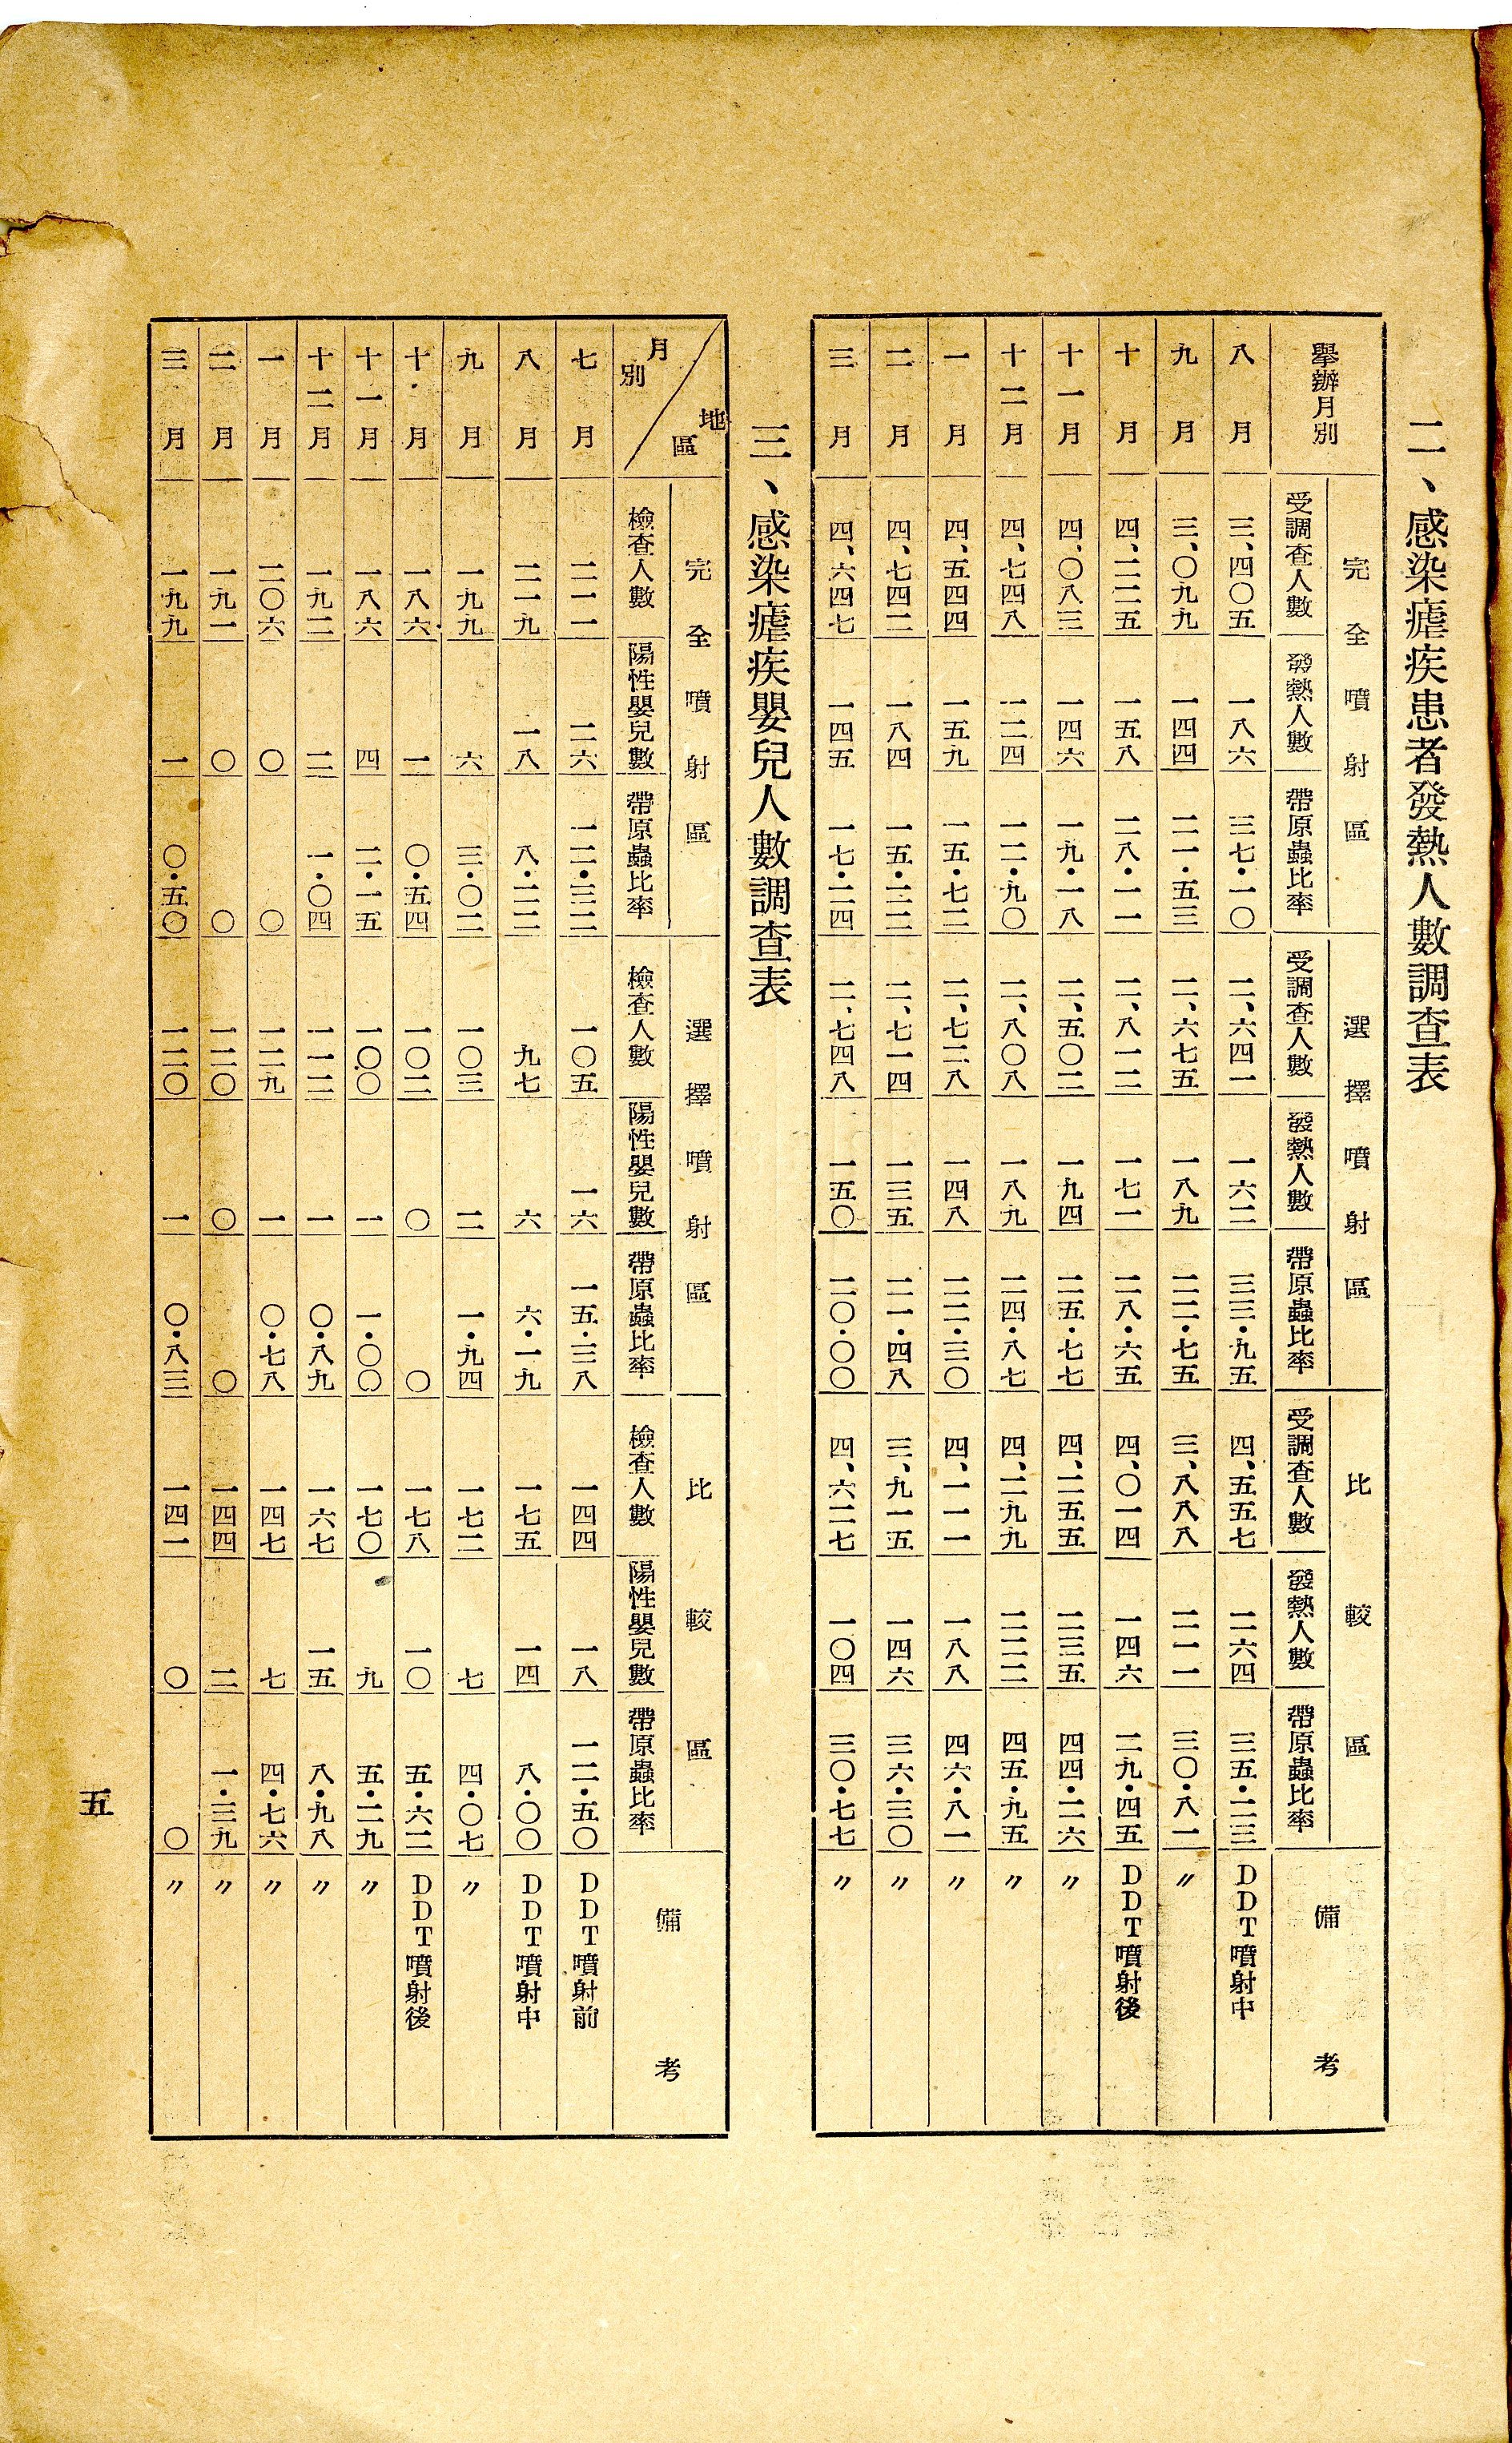 二、感染瘧疾患者發熱人數調查表
舉辦月別 完全噴射區 選擇噴射區 比較區 備考
受調查人數 發熱人數 帶原蟲比率 受調查人數 發熱人數 帶原蟲比率 受調查人數 發熱人數 帶原蟲比率
八月 三、四〇五 一八六 三七·一〇 二、六四一 一六二 三三·九五 四、五五七 二六四 三五·二三 DDT噴射中
九月 三、〇九九 一四四 二一·五三 二、六七五 一八九 二二·七五 三、八八八 二一一 三〇·八一 〃
十月 四、二二五 一五八 二八·一一 二、八一二 一七一 二八·六五 四、〇一四 一四六 二九·四五 DDT噴射後
十一月 四、〇八三 一四六 一九·一八 二、五〇二 一九四 二五·七七 四、二五五 二三五 四四·二六 〃
十二月 四、七四八 一二四 一二·九〇 二、八〇八 一八九 二四·八七 四、二九九 二二二 四五·九五 〃
一月 四、五四四 一五九 一五·七二 二、七二八 一四八 二二·三〇 四、一一一 一八八 四六·八一 〃
二月 四、七四二 一八四 一五·二二 二、七一四 一三五 二一·四八 三、九一五 一四六 三六·三〇 〃
三月 四、六四七 一四五 一七·二四 二、七四八 一五〇 二〇·〇〇 四、六二七 一〇四 三〇·七七 〃
三、感染瘧疾嬰兒人數調查表
地區 月別 完全噴射區 選擇噴射區 比較區 備考
檢查人數 陽性嬰兒數 帶原蟲比率 檢查人數 陽性嬰兒數 帶原蟲比率 檢查人數 陽性嬰兒數 帶原蟲比率
七月 二一一 二六 一二·三二 一〇五 一六 一五·三八 一四四 一八 一二·五〇 DDT噴射前
八月 二一九 一八 八·二二 九七 六 六·一九 一七五 一四 八·〇〇 DDT噴射中
九月 一九九 六 三·〇二 一〇三 二 一·九四 一七二 七 四·〇七 〃
十月 一八六 一 〇·五四 一〇二 〇 〇 一七八 一〇 五·六二 DDT噴射後
十一月 一八六 四 二·一五 一〇〇 一 一·〇〇 一七〇 九 五·二九 〃
十二月 一九二 二 一·〇四 一一二 一 〇·八九 一六七 一五 八·九八 〃
一月 二〇六 〇 〇 一二九 一 〇·七八 一四七 七 四·七六 〃
二月 一九一 〇 〇 一二〇 〇 〇 一四四 二 一·三九 〃
三月 一九九 一 〇·五〇 一二〇 一 〇·八三 一四二 〇 〇 〃
五